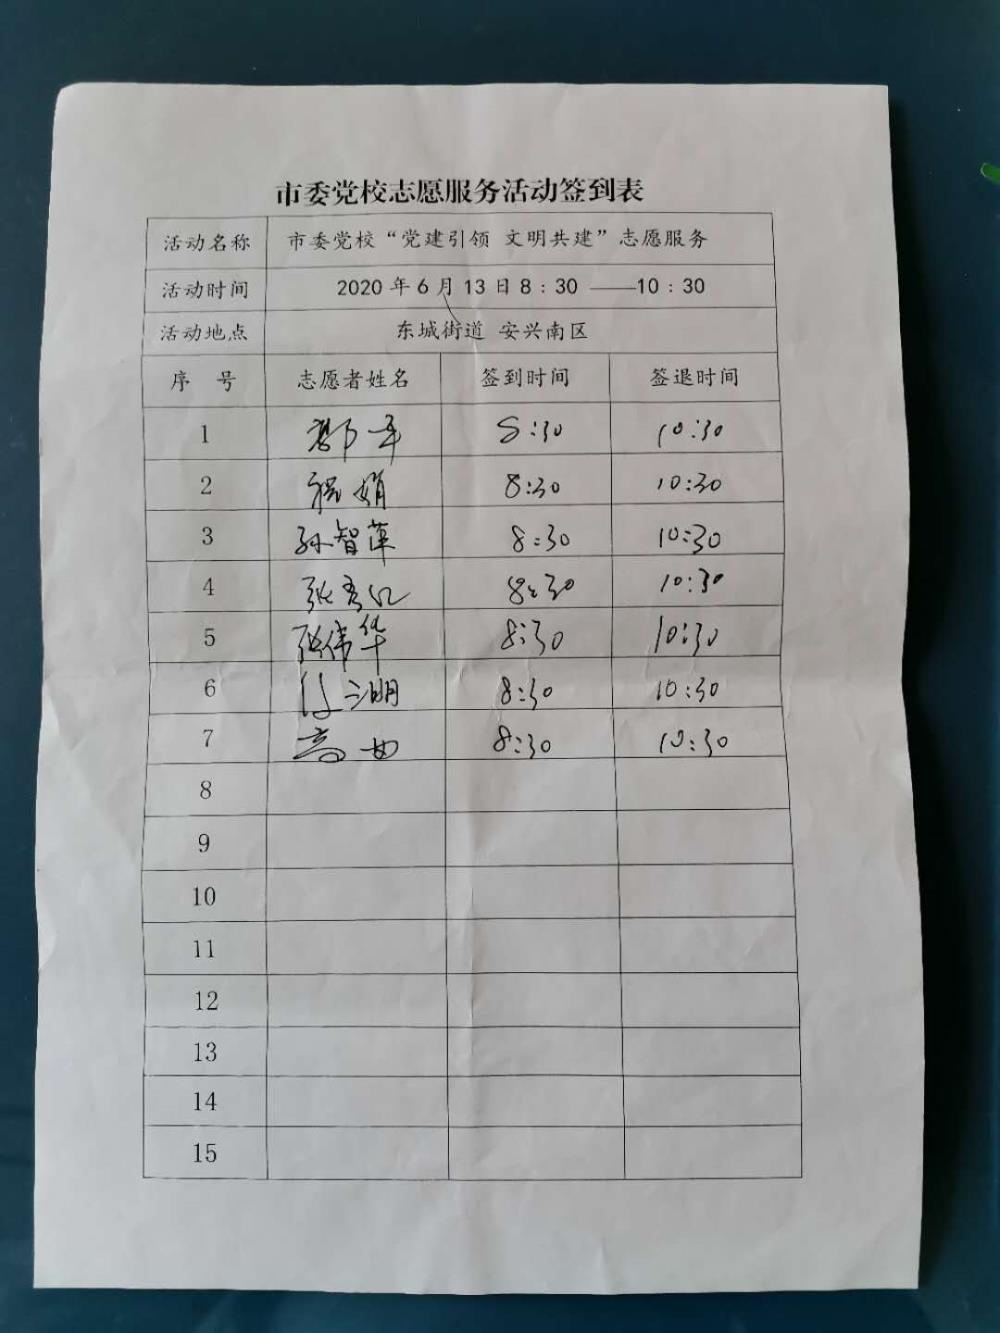 市委党校志愿服务活动签到表
活动名称 市委党校“党建引领 文明共建”志愿服务
活动时间 2020 年 6 月 13 日 8：30 ——10：30
活动地点 东城街道 安兴南区
序 号 志愿者姓名 签到时间 签退时间
1 8:30 10:30
2 程娟 8:30 10:30
3 孙智萍 8:30 10:30
4 8:30 10:30
5 张伟华 8:30 10:30
6 8:30 10:30
7 8:30 10:30
8
9
10
11
12
13
14
15